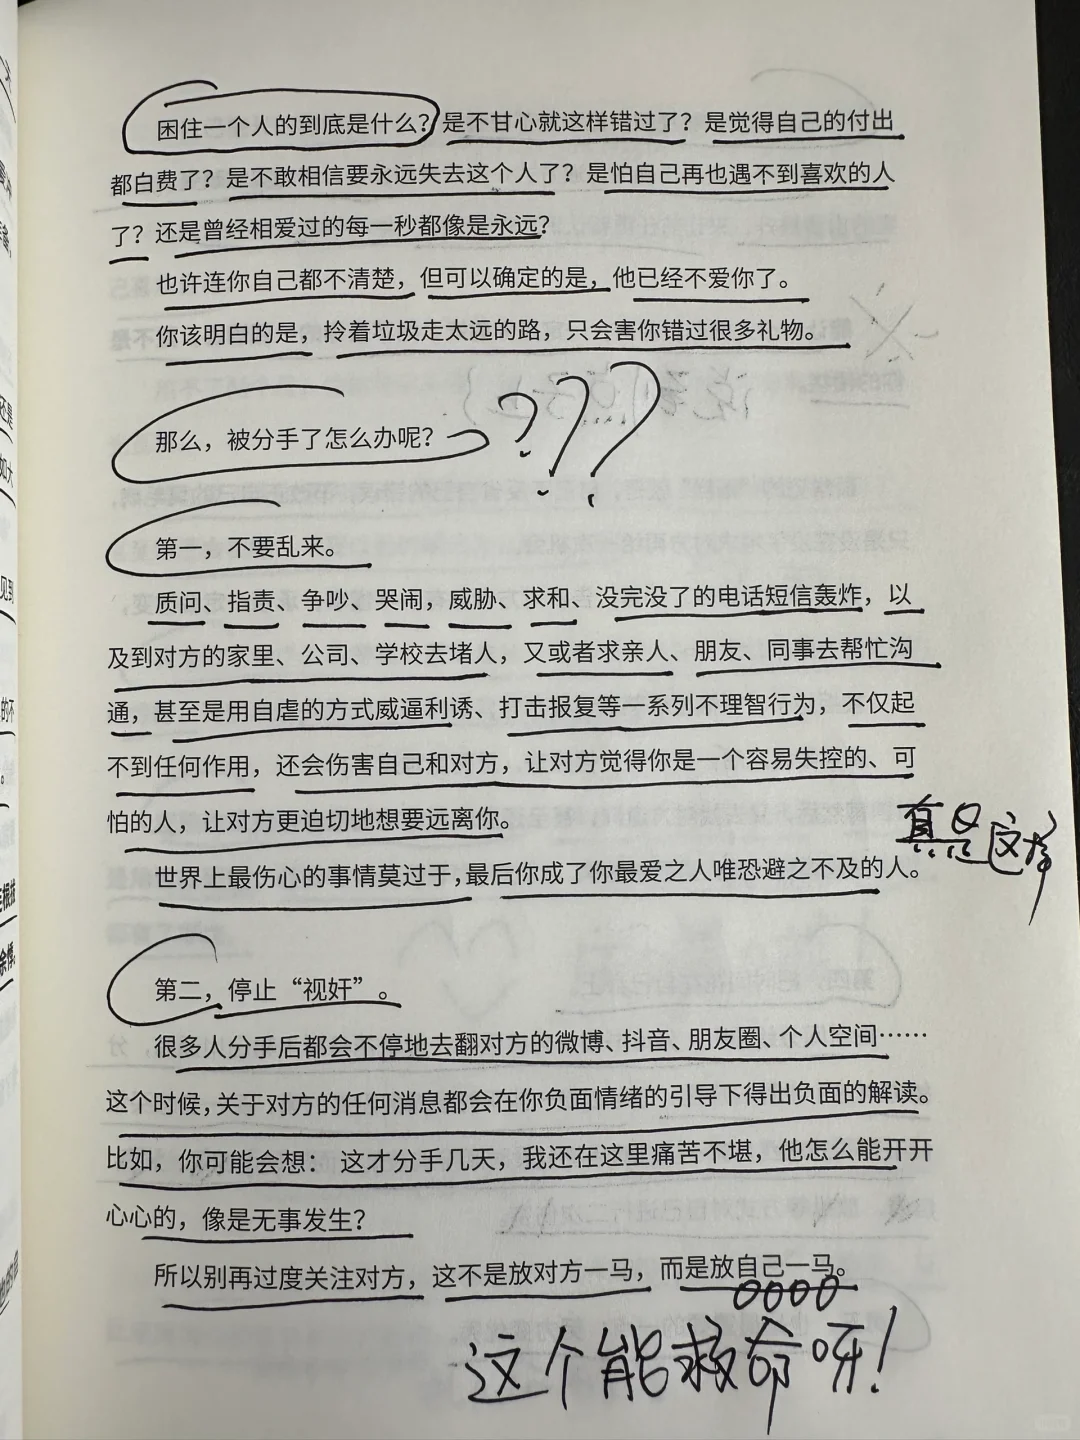 困住一个人的到底是什么？是不甘心就这样错过了？是觉得自己的付出
都白费了？是不敢相信要永远失去这个人了？是怕自己再也遇不到喜欢的人
了？还是曾经相爱过的每一秒都像是永远？
也许连你自己都不清楚，但可以确定的是，他已经不爱你了。
你该明白的是，拎着垃圾走太远的路，只会害你错过很多礼物。
那么，被分手了怎么办呢？
？？？
第一，不要乱来。
质问、指责、争吵、哭闹，威胁、求和、没完没了的电话短信轰炸，以
及到对方的家里、公司、学校去堵人，又或者求亲人、朋友、同事去帮忙沟
通，甚至是用自虐的方式威逼利诱、打击报复等一系列不理智行为，不仅起
不到任何作用，还会伤害自己和对方，让对方觉得你是一个容易失控的、可
怕的人，让对方更迫切地想要远离你。
真是这样
世界上最伤心的事情莫过于，最后你成了你最爱之人唯恐避之不及的人。
第二，停止“视奸”。
很多人分手后都会不停地去翻对方的微博、抖音、朋友圈、个人空间……
这个时候，关于对方的任何消息都会在你负面情绪的引导下得出负面的解读。
比如，你可能会想：这才分手几天，我还在这里痛苦不堪，他怎么能开开
心心的，像是无事发生？
所以别再过度关注对方，这不是放对方一马，而是放自己一马。
这个能救命呀！